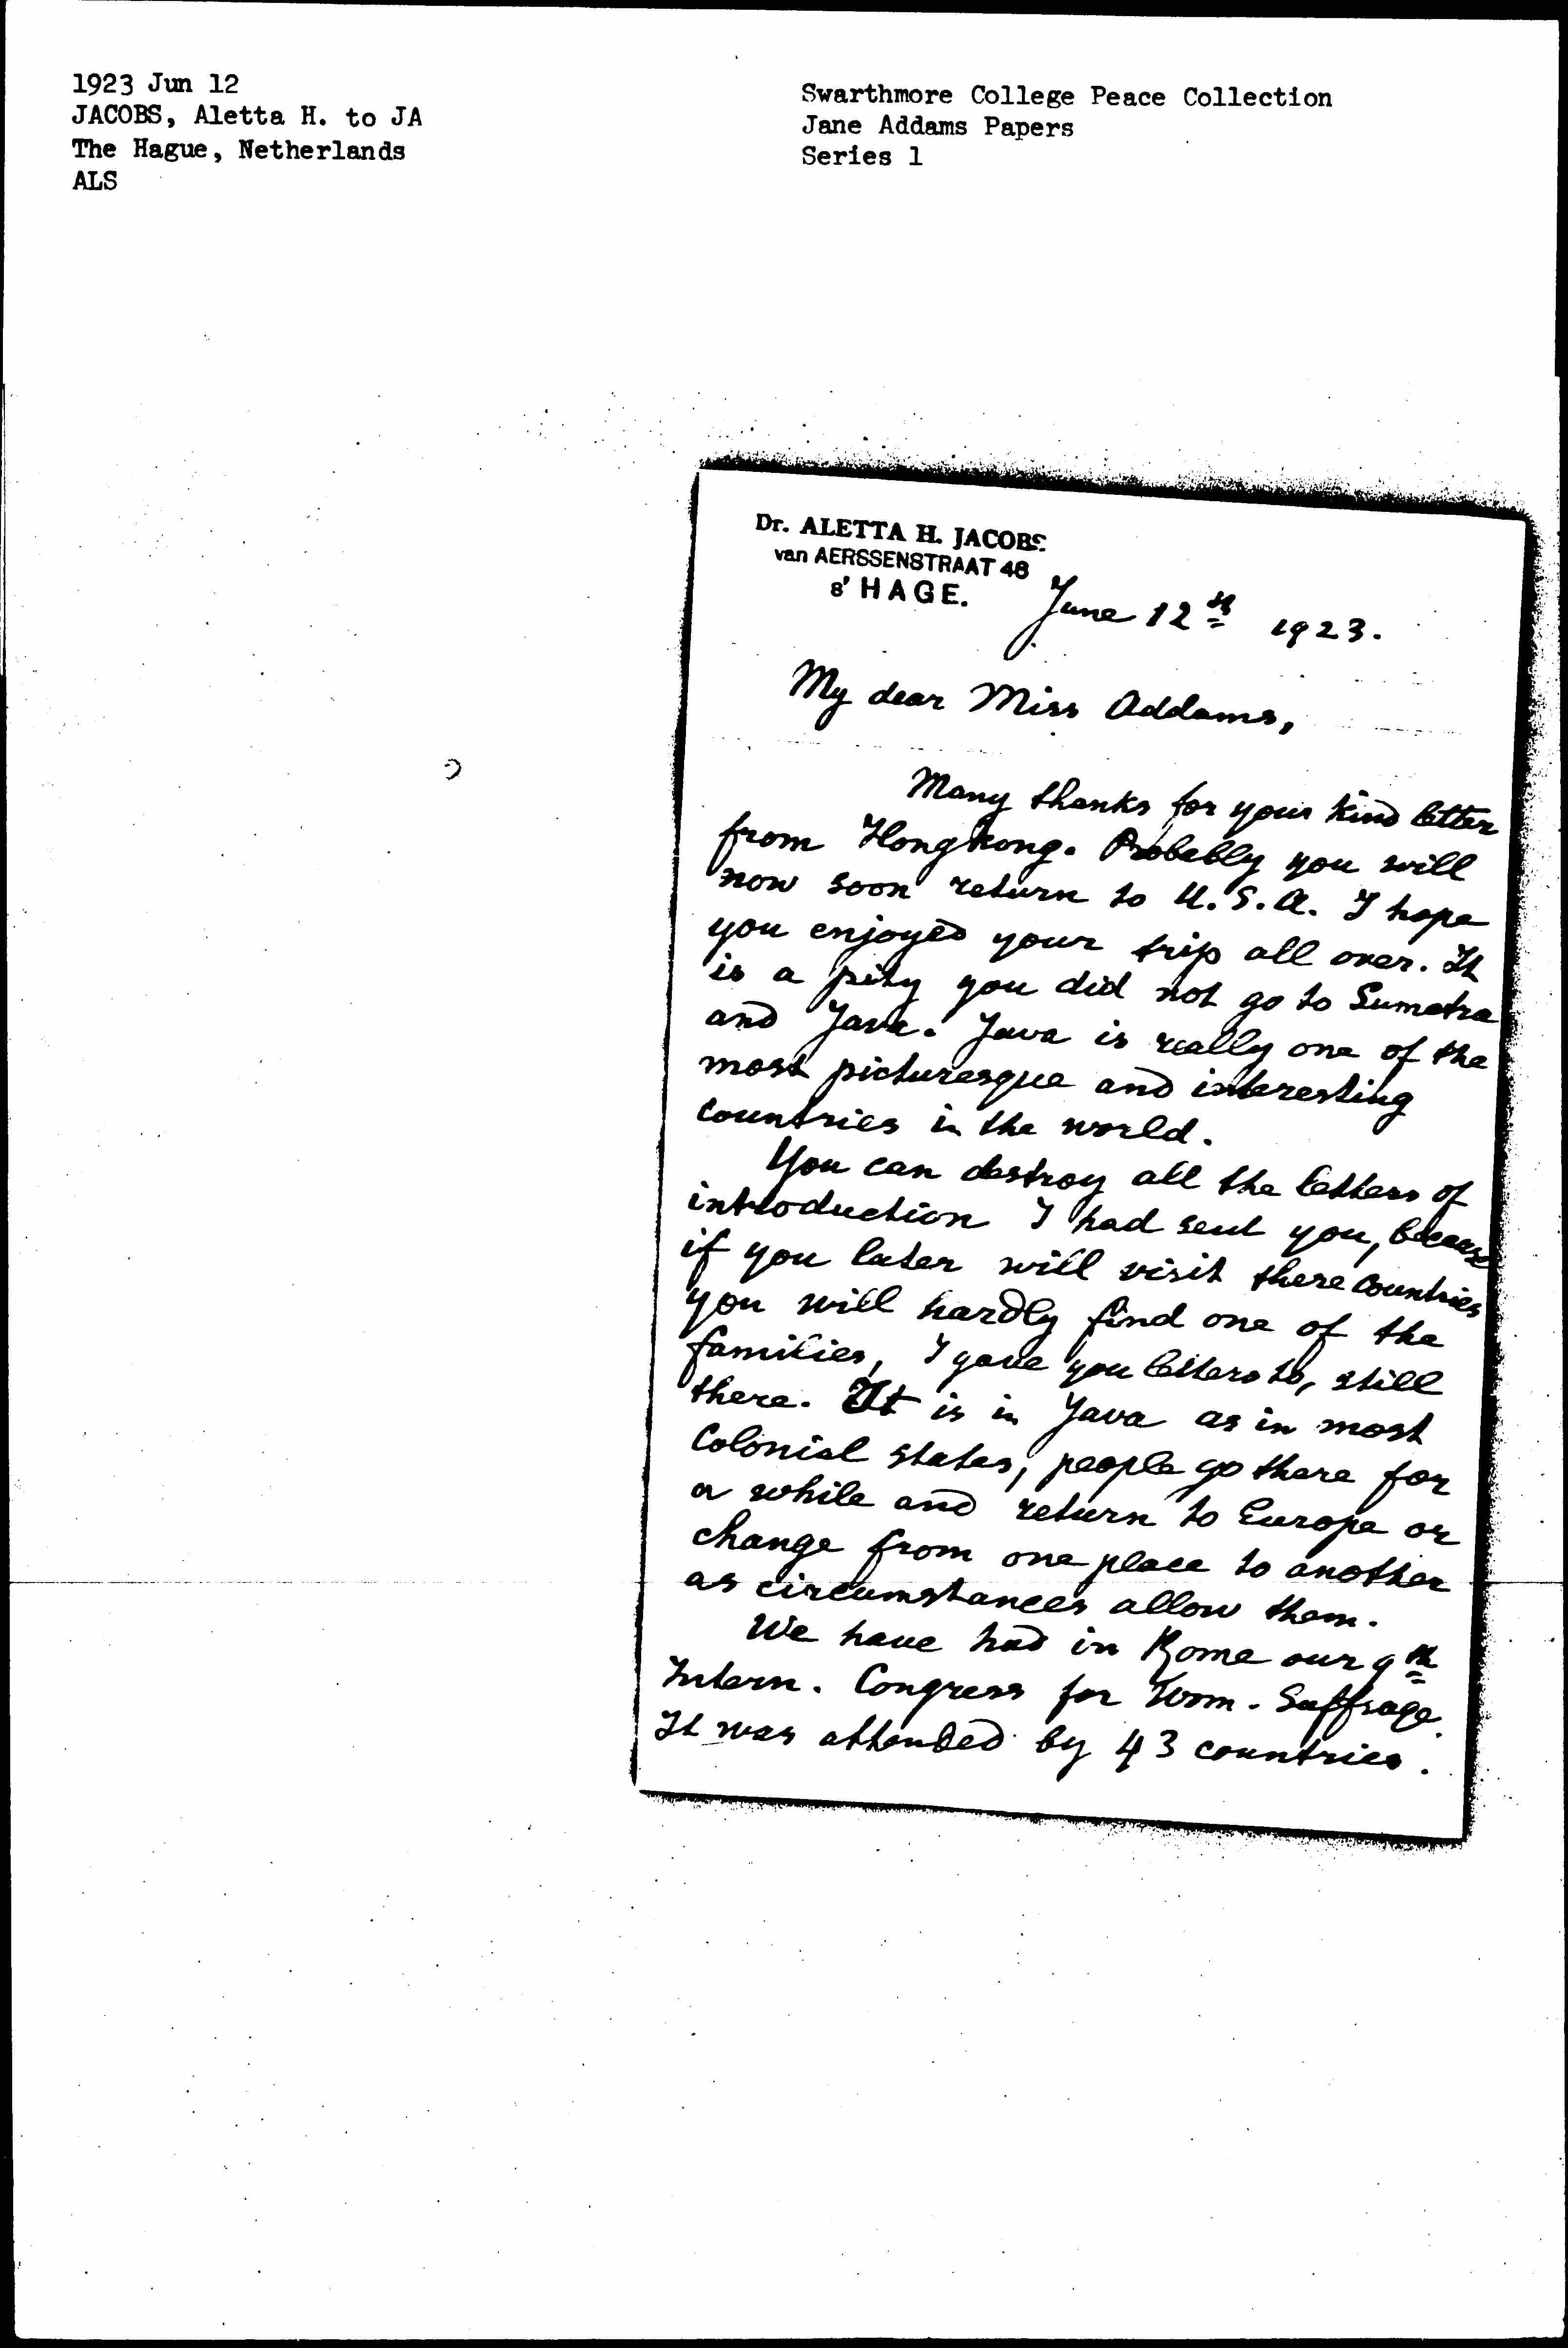 1923 Jun 12
JACOBS, Aletta H. to JA
The Hague, Netherlands
ALS
Swarthmore College Peace Collection
Jane Addams Papers
Series 1
Dr. ALETTA H. JACOBS
van AERSSENSTRAAT 46
s' HAGE.
June 12th 1923.
My dear Miss Addams,
Many thanks for your kind letter
from Hongkong. Probably you will
now soon return to U.S.A. I hope
you enjoyed your trip all over. It
is a pity you did not go to Sumatra
and Java. Java is really one of the
most picturesque and interesting
countries in the world.
You can destroy all the letters of
introduction I had sent you, because
if you later will visit these countries
you will hardly find one of the
families, I gave you letters to, still
there. It is in Java as in most
Colonial states, people go there for
a while and return to Europe or
change from one place to another
as circumstances allow them.
We have had in Rome our 9th
Intern. Congress for Wom. Suffrage.
It was attended by 43 countries.